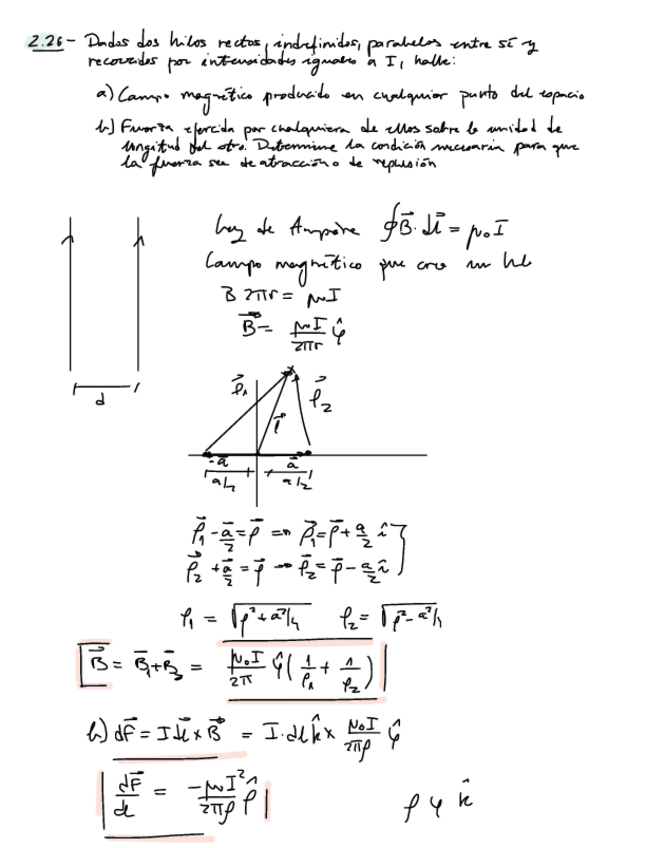 2.26- Dados dos hilos rectos, indefinidos, paralelos entre sí y
recorridos por intensidades iguales a I, halle:
a) Campo magnético producido en cualquier punto del espacio
b) Fuerza ejercida por cualquiera de ellos sobre la unidad de
longitud del otro. Determine la condición necesaria para que
la fuerza sea de atracción o de repulsión
d
Ley de Ampère ∮B⃗·dl⃗ = μ₀I
Campo magnético que crea un hilo
B 2πr = μ₀I
B⃗ = μ₀I/2πr φ̂
ρ⃗₁ ρ⃗₂
-a⃗ a⃗
a/2 a/2
ρ⃗₁ - a⃗/2 = ρ⃗ => ρ⃗₁ = ρ⃗ + a/2 î
ρ⃗₂ + a⃗/2 = ρ⃗ => ρ⃗₂ = ρ⃗ - a/2 î
ρ₁ = √(ρ²+a²/4) ρ₂ = √(ρ²-a²/4)
B⃗ = B⃗₁+B⃗₂ = μ₀I/2π φ̂ (1/ρ₁ + 1/ρ₂)
b) dF⃗ = I dl⃗ × B⃗ = I·dl k̂ × μ₀I/2πρ φ̂
dF⃗/dl = -μ₀I²/2πρ ρ̂
ρ φ k̂